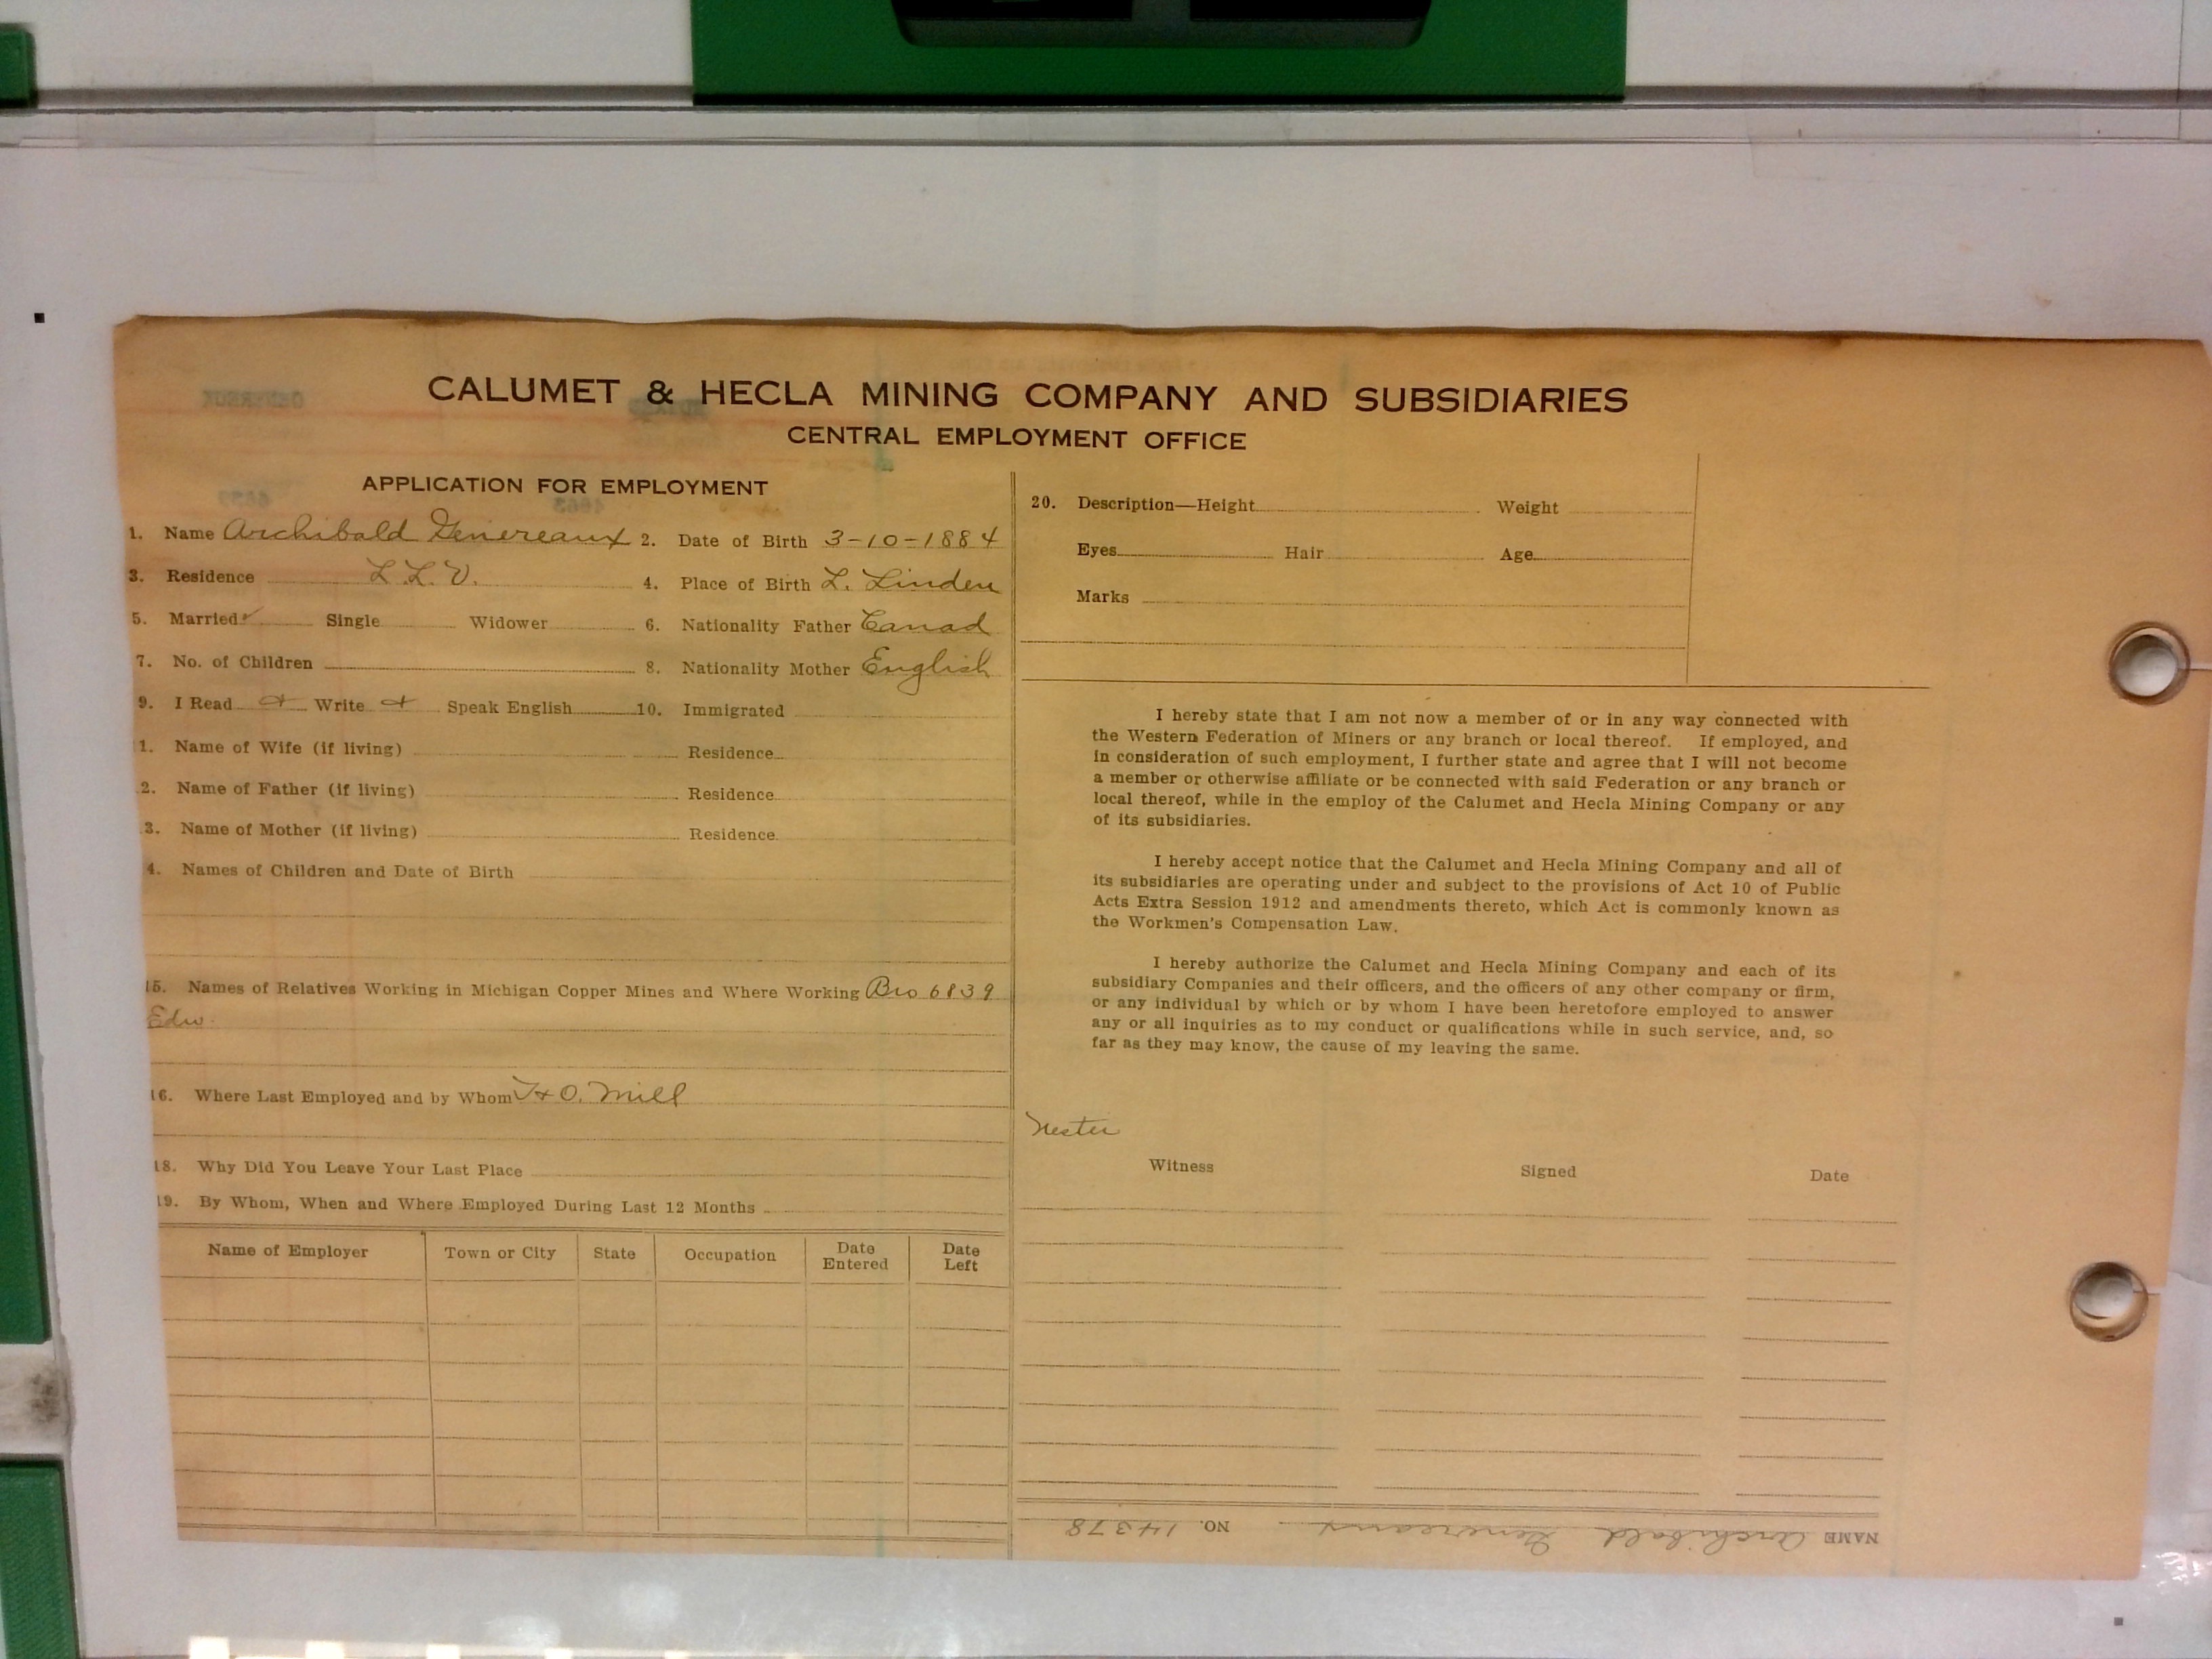 CALUMET & HECLA MINING COMPANY AND SUBSIDIARIES
CENTRAL EMPLOYMENT OFFICE
APPLICATION FOR EMPLOYMENT
1. Name Archibald Genereaux 2. Date of Birth 3-10-1884
3. Residence L.L.V. 4. Place of Birth L. Linden
5. Married ✓ Single Widower 6. Nationality Father Canad
7. No. of Children 8. Nationality Mother English
9. I Read + Write + Speak English 10. Immigrated
1. Name of Wife (if living) Residence
2. Name of Father (if living) Residence
3. Name of Mother (if living) Residence
4. Names of Children and Date of Birth
15. Names of Relatives Working in Michigan Copper Mines and Where Working Bro 6839
Edw.
16. Where Last Employed and by Whom O. Mill
18. Why Did You Leave Your Last Place
19. By Whom, When and Where Employed During Last 12 Months
Name of Employer Town or City State Occupation Date Entered Date Left
20. Description—Height Weight
Eyes Hair Age
Marks
I hereby state that I am not now a member of or in any way connected with
the Western Federation of Miners or any branch or local thereof. If employed, and
in consideration of such employment, I further state and agree that I will not become
a member or otherwise affiliate or be connected with said Federation or any branch or
local thereof, while in the employ of the Calumet and Hecla Mining Company or any
of its subsidiaries.
I hereby accept notice that the Calumet and Hecla Mining Company and all of
its subsidiaries are operating under and subject to the provisions of Act 10 of Public
Acts Extra Session 1912 and amendments thereto, which Act is commonly known as
the Workmen's Compensation Law.
I hereby authorize the Calumet and Hecla Mining Company and each of its
subsidiary Companies and their officers, and the officers of any other company or firm,
or any individual by which or by whom I have been heretofore employed to answer
any or all inquiries as to my conduct or qualifications while in such service, and, so
far as they may know, the cause of my leaving the same.
Nester
Witness Signed Date
NAME Archibald Genereaux NO. 14378